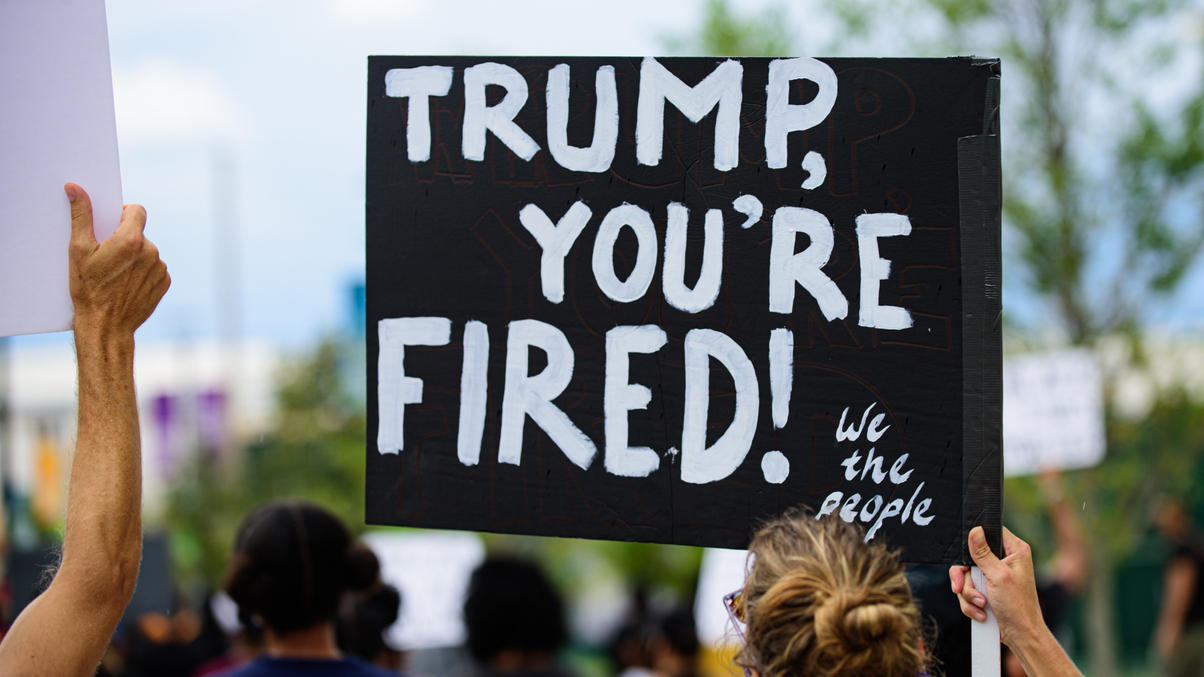 TRUMP,
YOU'RE
FIRED!
We
the
people